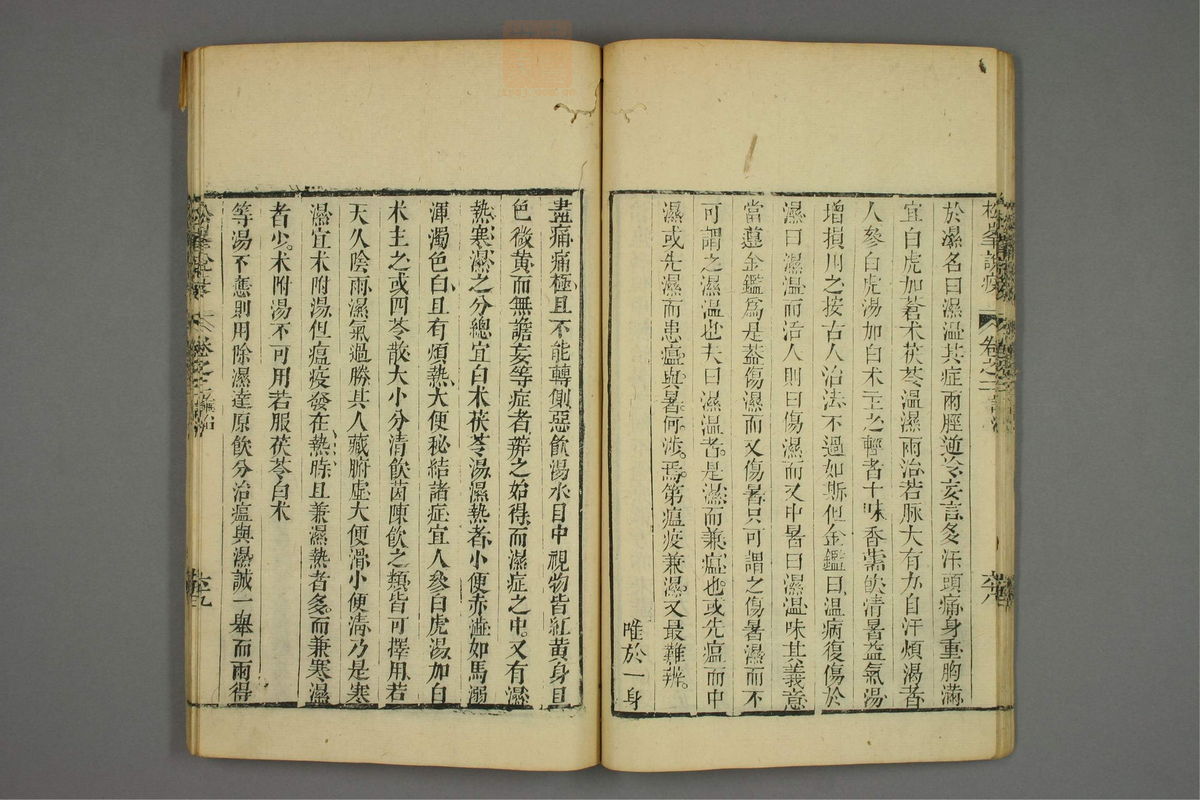 松峯說疫
卷之二
六八
於濕名曰濕溫其症兩脛逆冷妄言多汗頭痛身重胸滿
宜白虎加蒼术茯苓溫濕兩治若脉大有力自汗煩渴者
人參白虎湯加白术主之輕者十味香薷飲清暑益氣湯
增損用之按古人治法不過如斯但金鑑曰温病復傷於
濕曰濕溫而活人則曰傷濕而又中暑曰濕温味其義意
當遵金鑑爲是葢傷濕而又傷暑只可謂之傷暑濕而不
可謂之濕温也夫曰濕温者是濕而兼瘟也或先瘟而中
濕或先濕而患瘟與暑何涉焉第瘟疫兼濕又最難辨
唯於一身
盡痛痛極且不能轉側惡飲湯水目中視物皆紅黄身目
色微黄而無譫妄等症者辨之始得而濕症之中又有濕
熱寒濕之分總宜白术茯苓湯濕熱者小便赤澁如馬溺
渾濁色白且有煩熱大便秘結諸症宜人參白虎湯加白
术主之或四苓散大小分清飲茵陳飲之類皆可擇用若
天久陰雨濕氣過勝其人藏腑虛大便滑小便清乃是寒
濕宜术附湯但瘟疫發在熱時且兼濕熱者多而兼寒濕
者少术附湯不可用若服茯苓白术
等湯不應則用除濕達原飲分治瘟與濕誠一舉而兩得
松峯說疫
卷之二
六九